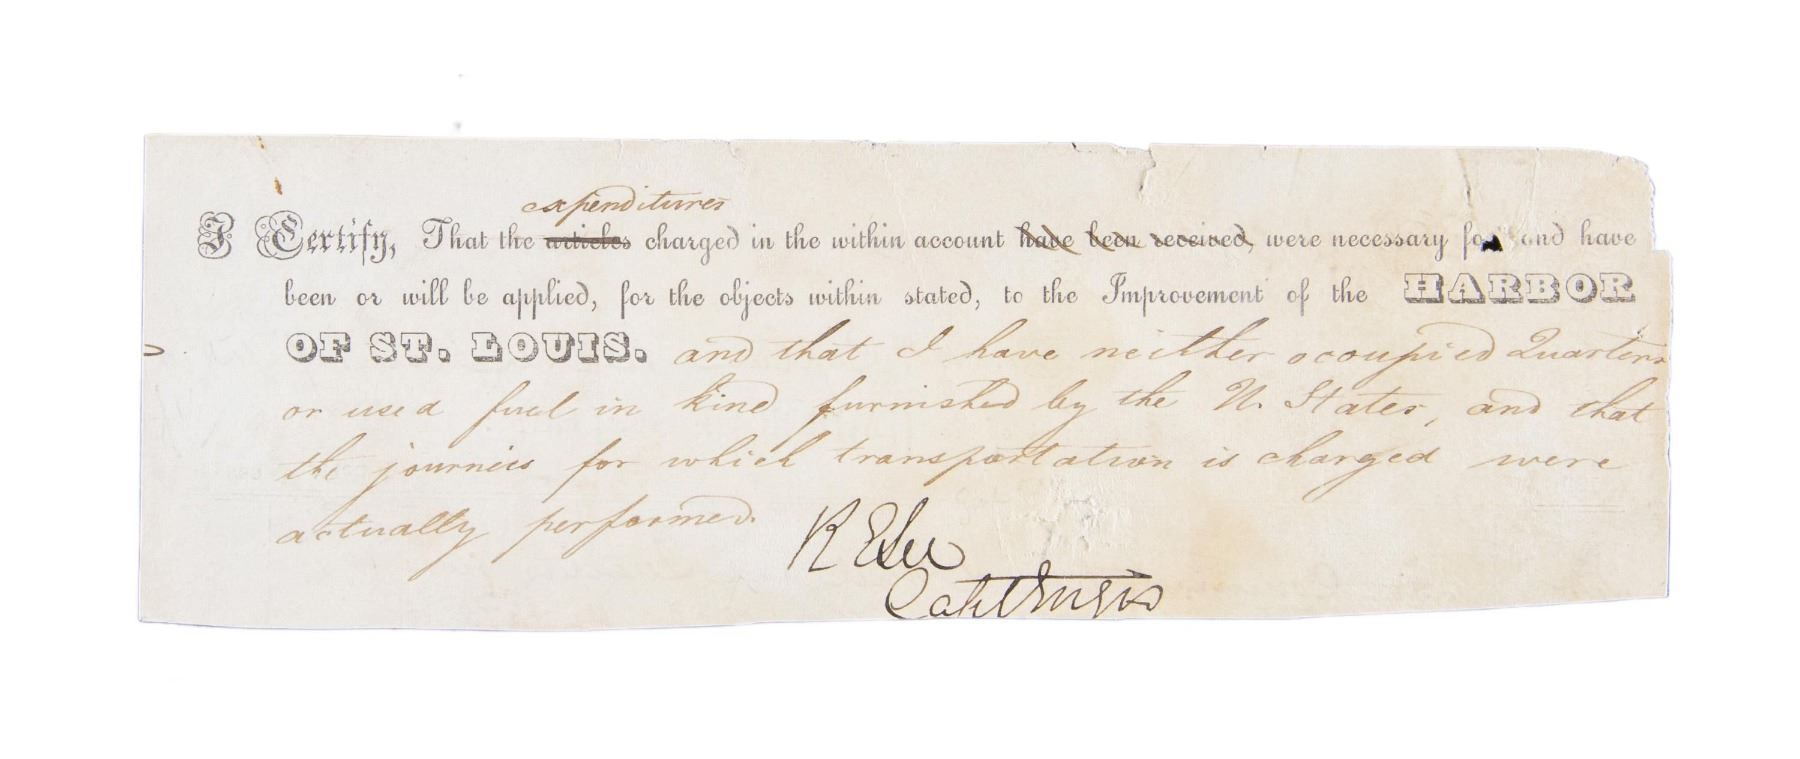 expenditures
I Certify, That the articles charged in the within account have been received, were necessary for and have
been or will be applied, for the objects within stated, to the Improvement of the HARBOR
OF ST. LOUIS. and that I have neither occupied Quarters
or used fuel in kind furnished by the U. States, and that
the journies for which transportation is charged were
actually performed.
R E Lee
Capt Engrs